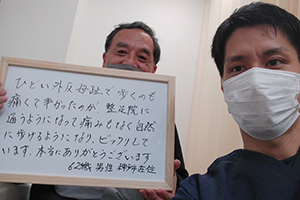 ひどい外反母趾で歩くのも
痛くて辛かったのが、整足院に
通うようになって痛みもなく自然
に歩けるようになり、ビックリして
います。本当にありがとうございます
62歳 男性 神戸在住